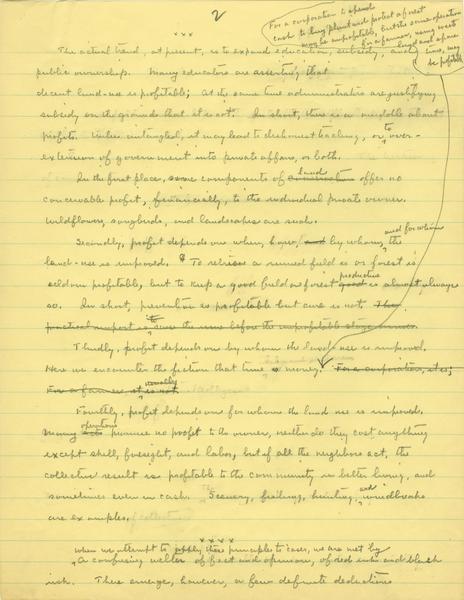 2
For a corporation to spend
cash to buy plant and protect a forest
may be unprofitable, but the same operation
for a farmer, using waste
land and spare
time, may
be profitable
x x x
The actual trend, at present, is to expand education, subsidy, and
public ownership. Many educators are asserting that
decent land-use is profitable; at the same time administrators are justifying
subsidy on the grounds that it is not. In short, there is a muddle about
profits. Unless untangled, it may lead to dishonest teaching, or to over-
extension of government into private affairs, or both.
In the first place, some components of land offer no
conceivable profit, financially, to the individual private owner.
Wildflowers, songbirds, and landscapes are such.
Secondly, profit depends on when, how, and by whom, and for whom the
land-use is improved. To retrieve a ruined field or forest is
seldom profitable, but to keep a good field or forest productive is almost always
so. In short, prevention is profitable but cure is not. The
practical import is to the before the unprofitable stage
Thirdly, profit depends on by whom the land use is improved.
Here we encounter the fiction that time is money. For a corporation, it is;
For a farmer it usually is not
Fourthly, profit depends on for whom the land use is improved.
Many acts operations promise no profit to the owner, neither do they cost anything
except skill, foresight, and labor, but if all the neighbors act, the
collective result is profitable to the community in better living, and
sometimes even in cash. Scenery, fishing, hunting, and windbreaks
are examples.
x x x x
When we attempt to apply these principles to cases, we are met by
a confusing welter of fact and opinion, of red ink and black
ink. There emerge, however, a few definite deductions